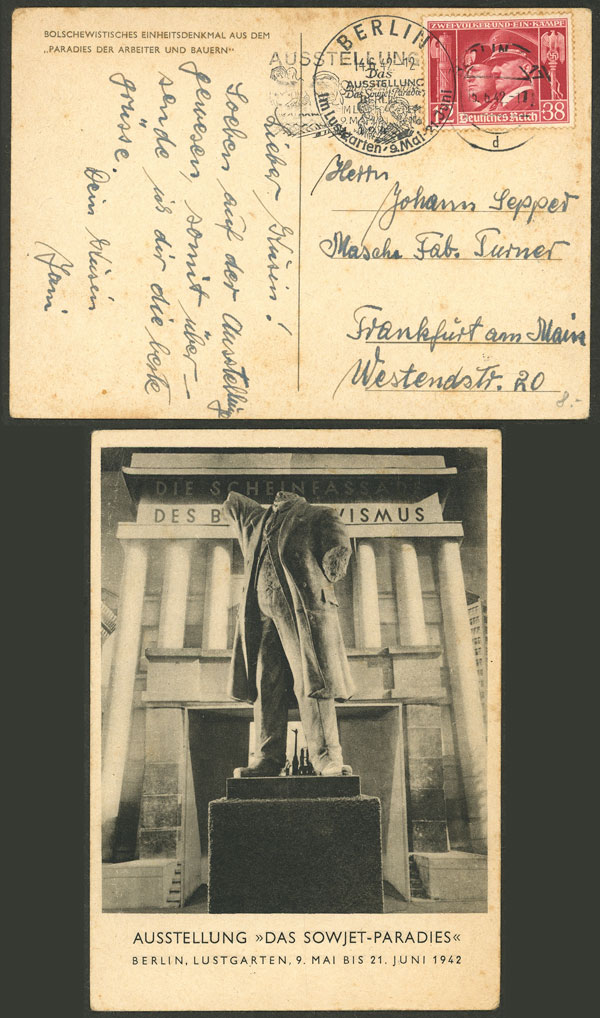 BOLSCHEWISTISCHES EINHEITSDENKMAL AUS DEM
„PARADIES DER ARBEITER UND BAUERN“
AUSSTELLUNG
BERLIN
14.6.42-12
Das
AUSSTELLUNG
Das Sowjet-Paradies
BERLIN
9. MAI
im Lustgarten · 9. Mai - 21. Juni
ZWEI VÖLKER UND EIN KAMPF
12 Deutsches Reich 38
d
Lieber Kusin!
Soeben auf der Ausstellung
gewesen, somit über-
sende ich dir die beste
grüsse.
Dein Kusin
Jani
Herrn
Johann Sepper
Masch. Fab. Turner
Frankfurt am Main
Westendstr. 20
8.-
DIE SCHEINFASSADE
DES B VISMUS
AUSSTELLUNG »DAS SOWJET-PARADIES«
BERLIN, LUSTGARTEN, 9. MAI BIS 21. JUNI 1942